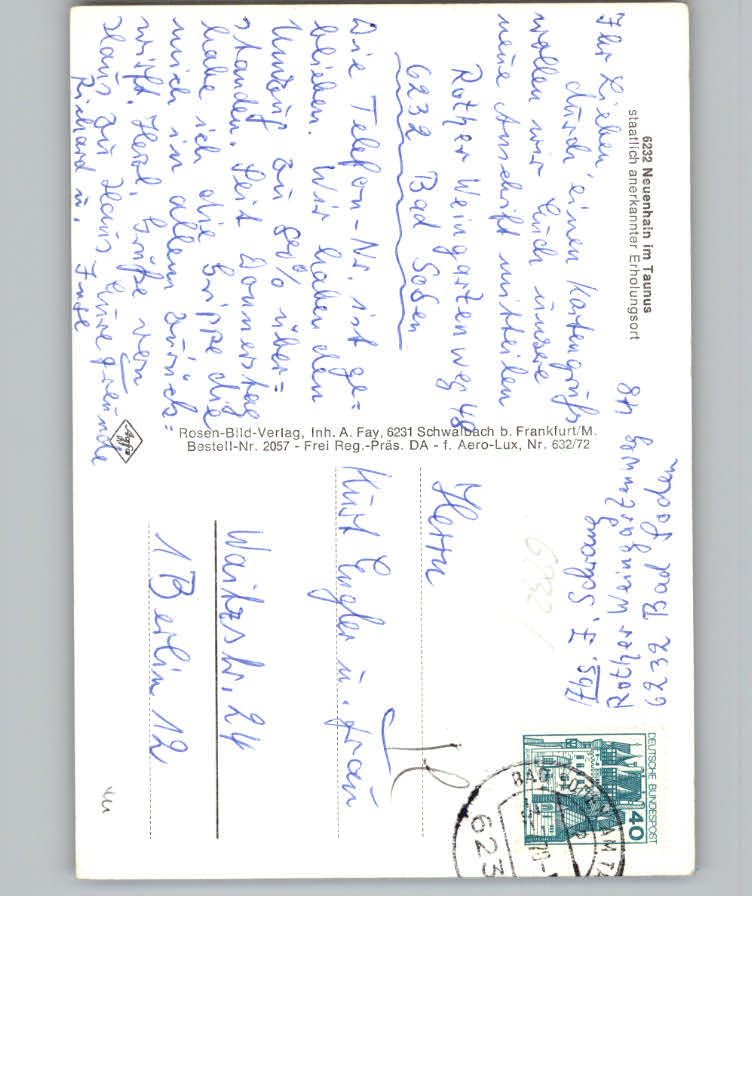 6232 Neuenhain im Taunus
staatlich anerkannter Erholungsort
Ihr Lieben,
durch einen Kartengruß
wollen wir Euch unsere
neue Anschrift mitteilen
Rother Weingartenweg 48
6232 Bad Soden
Die Telefon-Nr. ist ge-
blieben. Wir haben den
Umzug zu 80% über=
standen. Seit Donnerstag
habe ich die Grippe die
mich in allem zurück=
wirft. Herzl. Grüße von
Haus zu Haus Eure Freunde
Richard u.
Rosen-Bild-Verlag, Inh. A. Fay, 6231 Schwalbach b. Frankfurt/M.
Bestell-Nr. 2057 - Frei Reg.-Präs. DA - f. Aero-Lux, Nr. 632/72
Agfa
Abs.
Rother Weingartenweg 48
6232 Bad Soden
DEUTSCHE BUNDESPOST
40
BAD SODEN AM TA
623
Herrn
Kurt Engler u. Frau
Waitzstr. 24
1 Berlin 12